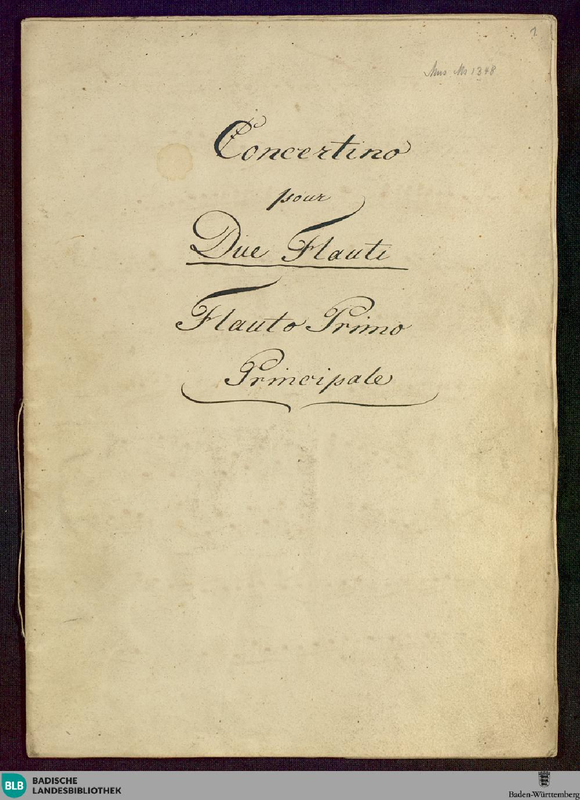 1
Mus. Ms 1348
Concertino
pour
Due Flauti
Flauto Primo
Principale
BLB
BADISCHE
LANDESBIBLIOTHEK
Baden-Württemberg